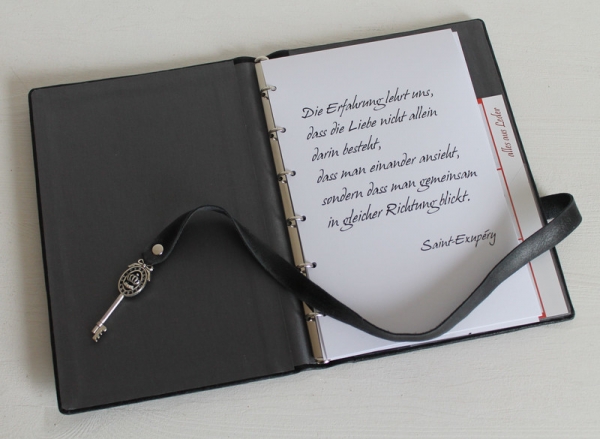 Die Erfahrung lehrt uns,
dass die Liebe nicht allein
darin besteht,
dass man einander ansieht,
sondern dass man gemeinsam
in gleicher Richtung blickt.
Saint-Exupéry
alles aus Leder